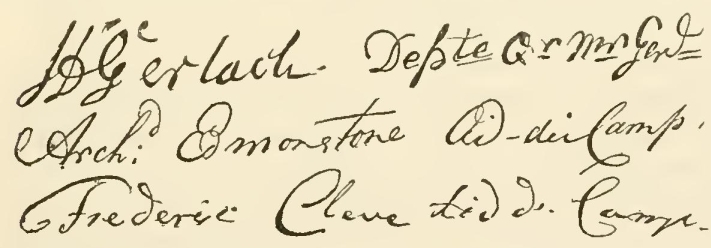 HDGerlach. Depte Qr Mr Genl
Archd Edmonstone Aid-du Camp.
Frederic Cleve Aid d. Camp.